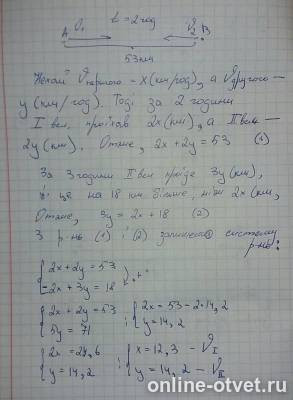 A ϑ₁ t = 2 год ϑ₂ B
53 км
Нехай ϑ першого – x (км/год), а ϑ другого –
y (км/год). Тоді за 2 години
I вел. проїхав 2x (км), а II вел –
2y (км). Отже, 2x + 2y = 53 (1)
За 3 години II вел проїде 3y (км),
і це на 18 км більше, ніж 2x (км,
Отже, 3y = 2x + 18 (2)
З р-нь (1) і (2) запишемо систему
р-нь:
{ 2x + 2y = 53
{ -2x + 3y = 18 "+"
{ 2x + 2y = 53 ; { 2x = 53 - 2·14,2
{ 5y = 71 { y = 14,2
{ 2x = 24,6 ; { x = 12,3 – ϑ I
{ y = 14,2 { y = 14,2 – ϑ II
online-otvet.ru